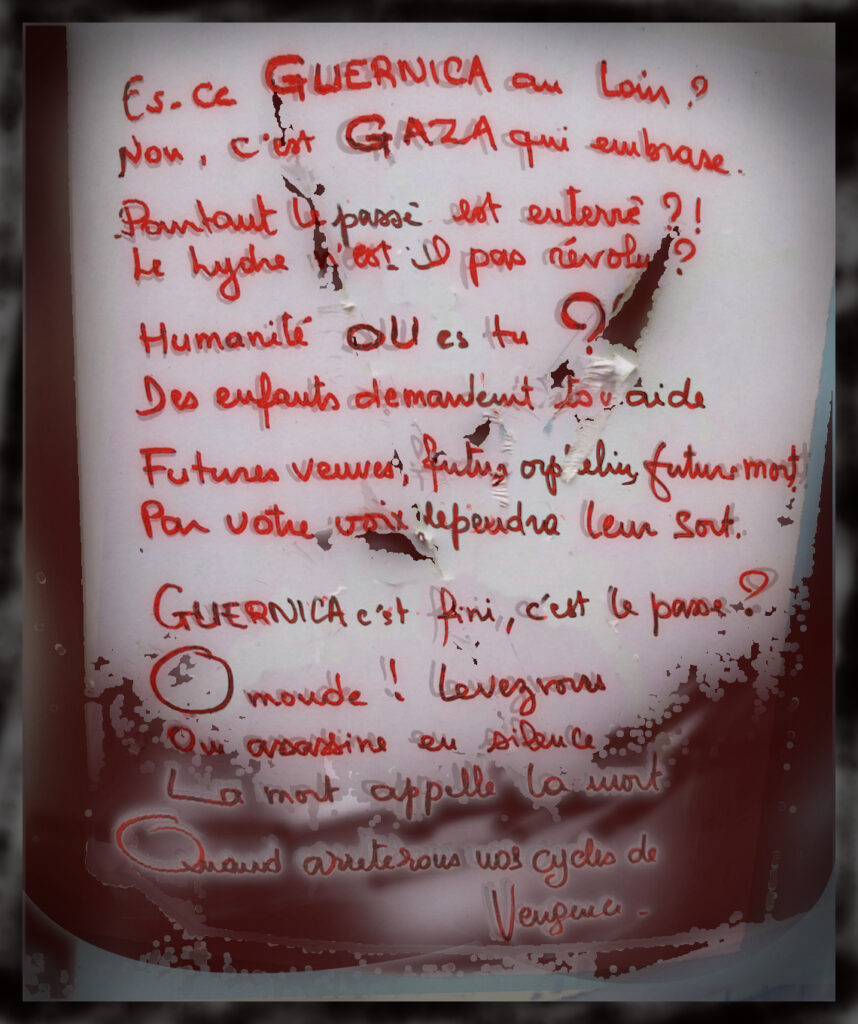 Es-ce GUERNICA au loin ?
Non, c'est GAZA qui embrase.
Pourtant le passé est enterré ?!
Le hydre n'est il pas révolu ?
Humanité OU es tu ?
Des enfants demandent ton aide
Futures veuves, futur orp'elin, future mort,
Par votre voix dependra leur sort.
GUERNICA c'est fini, c'est le passé ?
O monde ! Levez vous
On assassine en silence
La mort appelle la mort
Quand arreterons nos cycles de
Vengence.